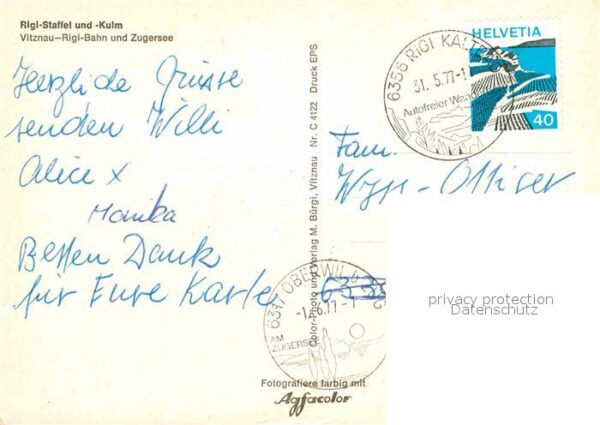 Rigi-Staffel und -Kulm
Vitznau—Rigi-Bahn und Zugersee
Herzliche Grüsse
senden Willi
Alice x
Monika
Besten Dank
für Eure Karte
Color-Photo und Verlag M. Bürgi, Vitznau Nr. C 4122 Druck EPS
6356 RIGI KALT
31.5.77-1
Autofreier Wand
HELVETIA
40
Fam.
Wyss-Ottiger
6317 OBERWIL b. ZUG
-1.6.77-1
AM
ZUGERSEE
privacy protection
Datenschutz
Fotografiere farbig mit
Agfacolor